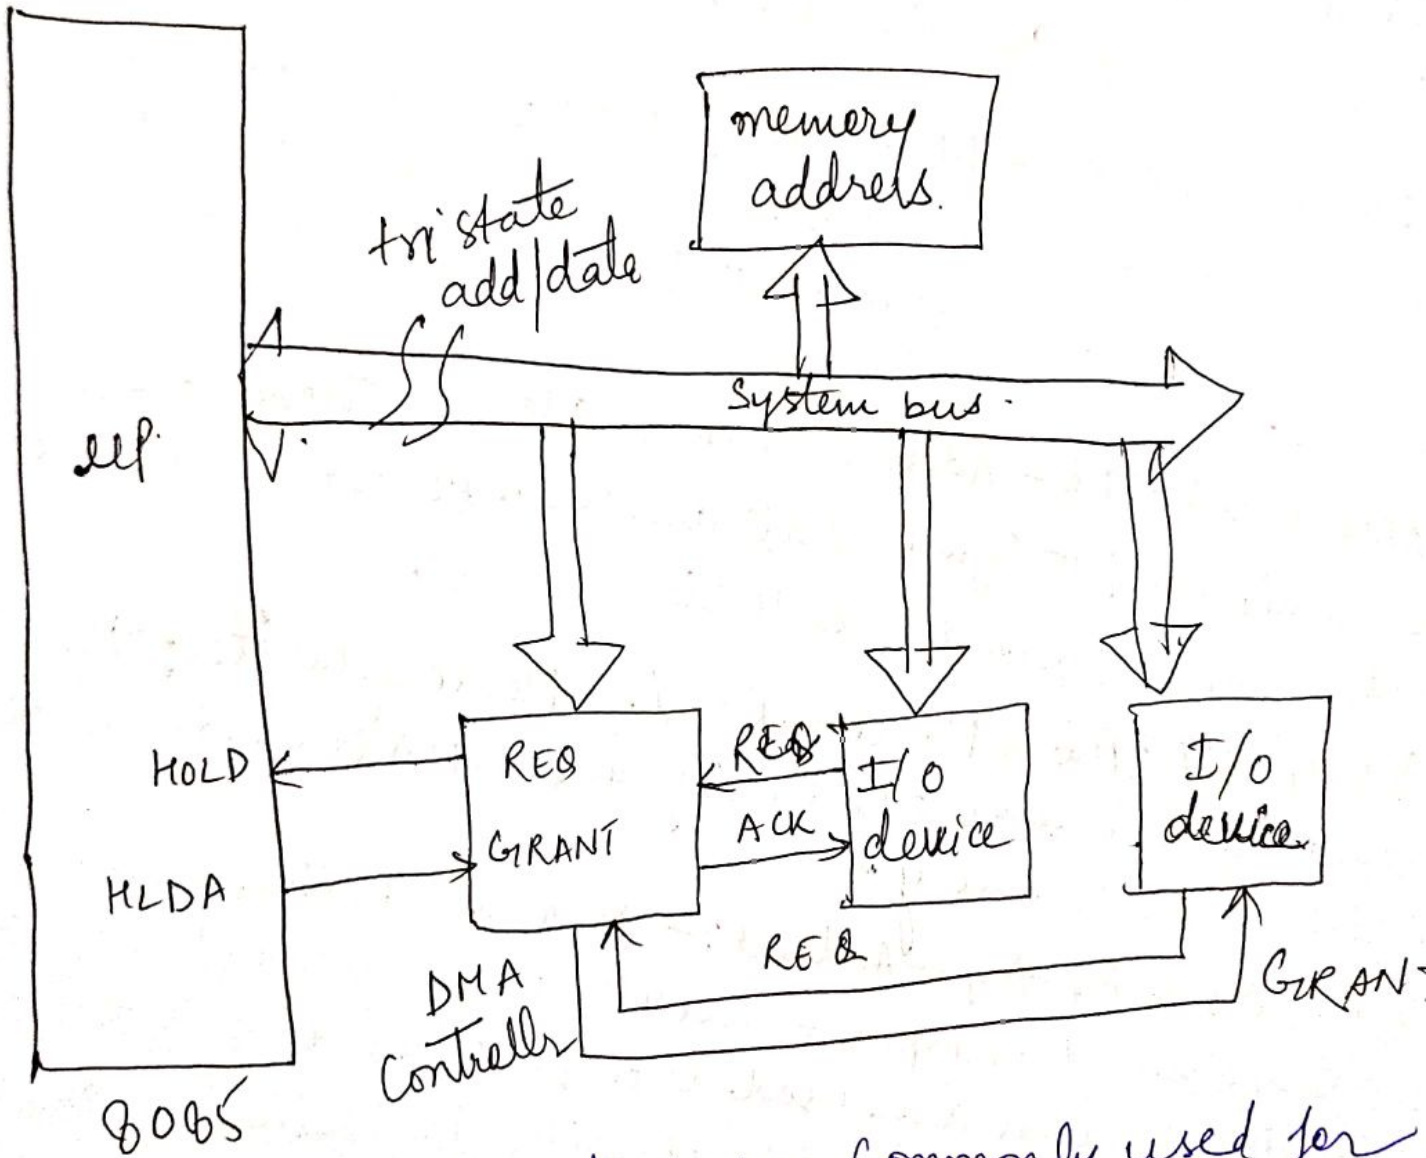 memory
address.
tri state
add/data
System bus.
μp.
HOLD
HLDA
REQ
GRANT
REQ
ACK
I/O
device
I/O
device
REQ
GRANT
DMA
Controlls
8085
Commonly used for